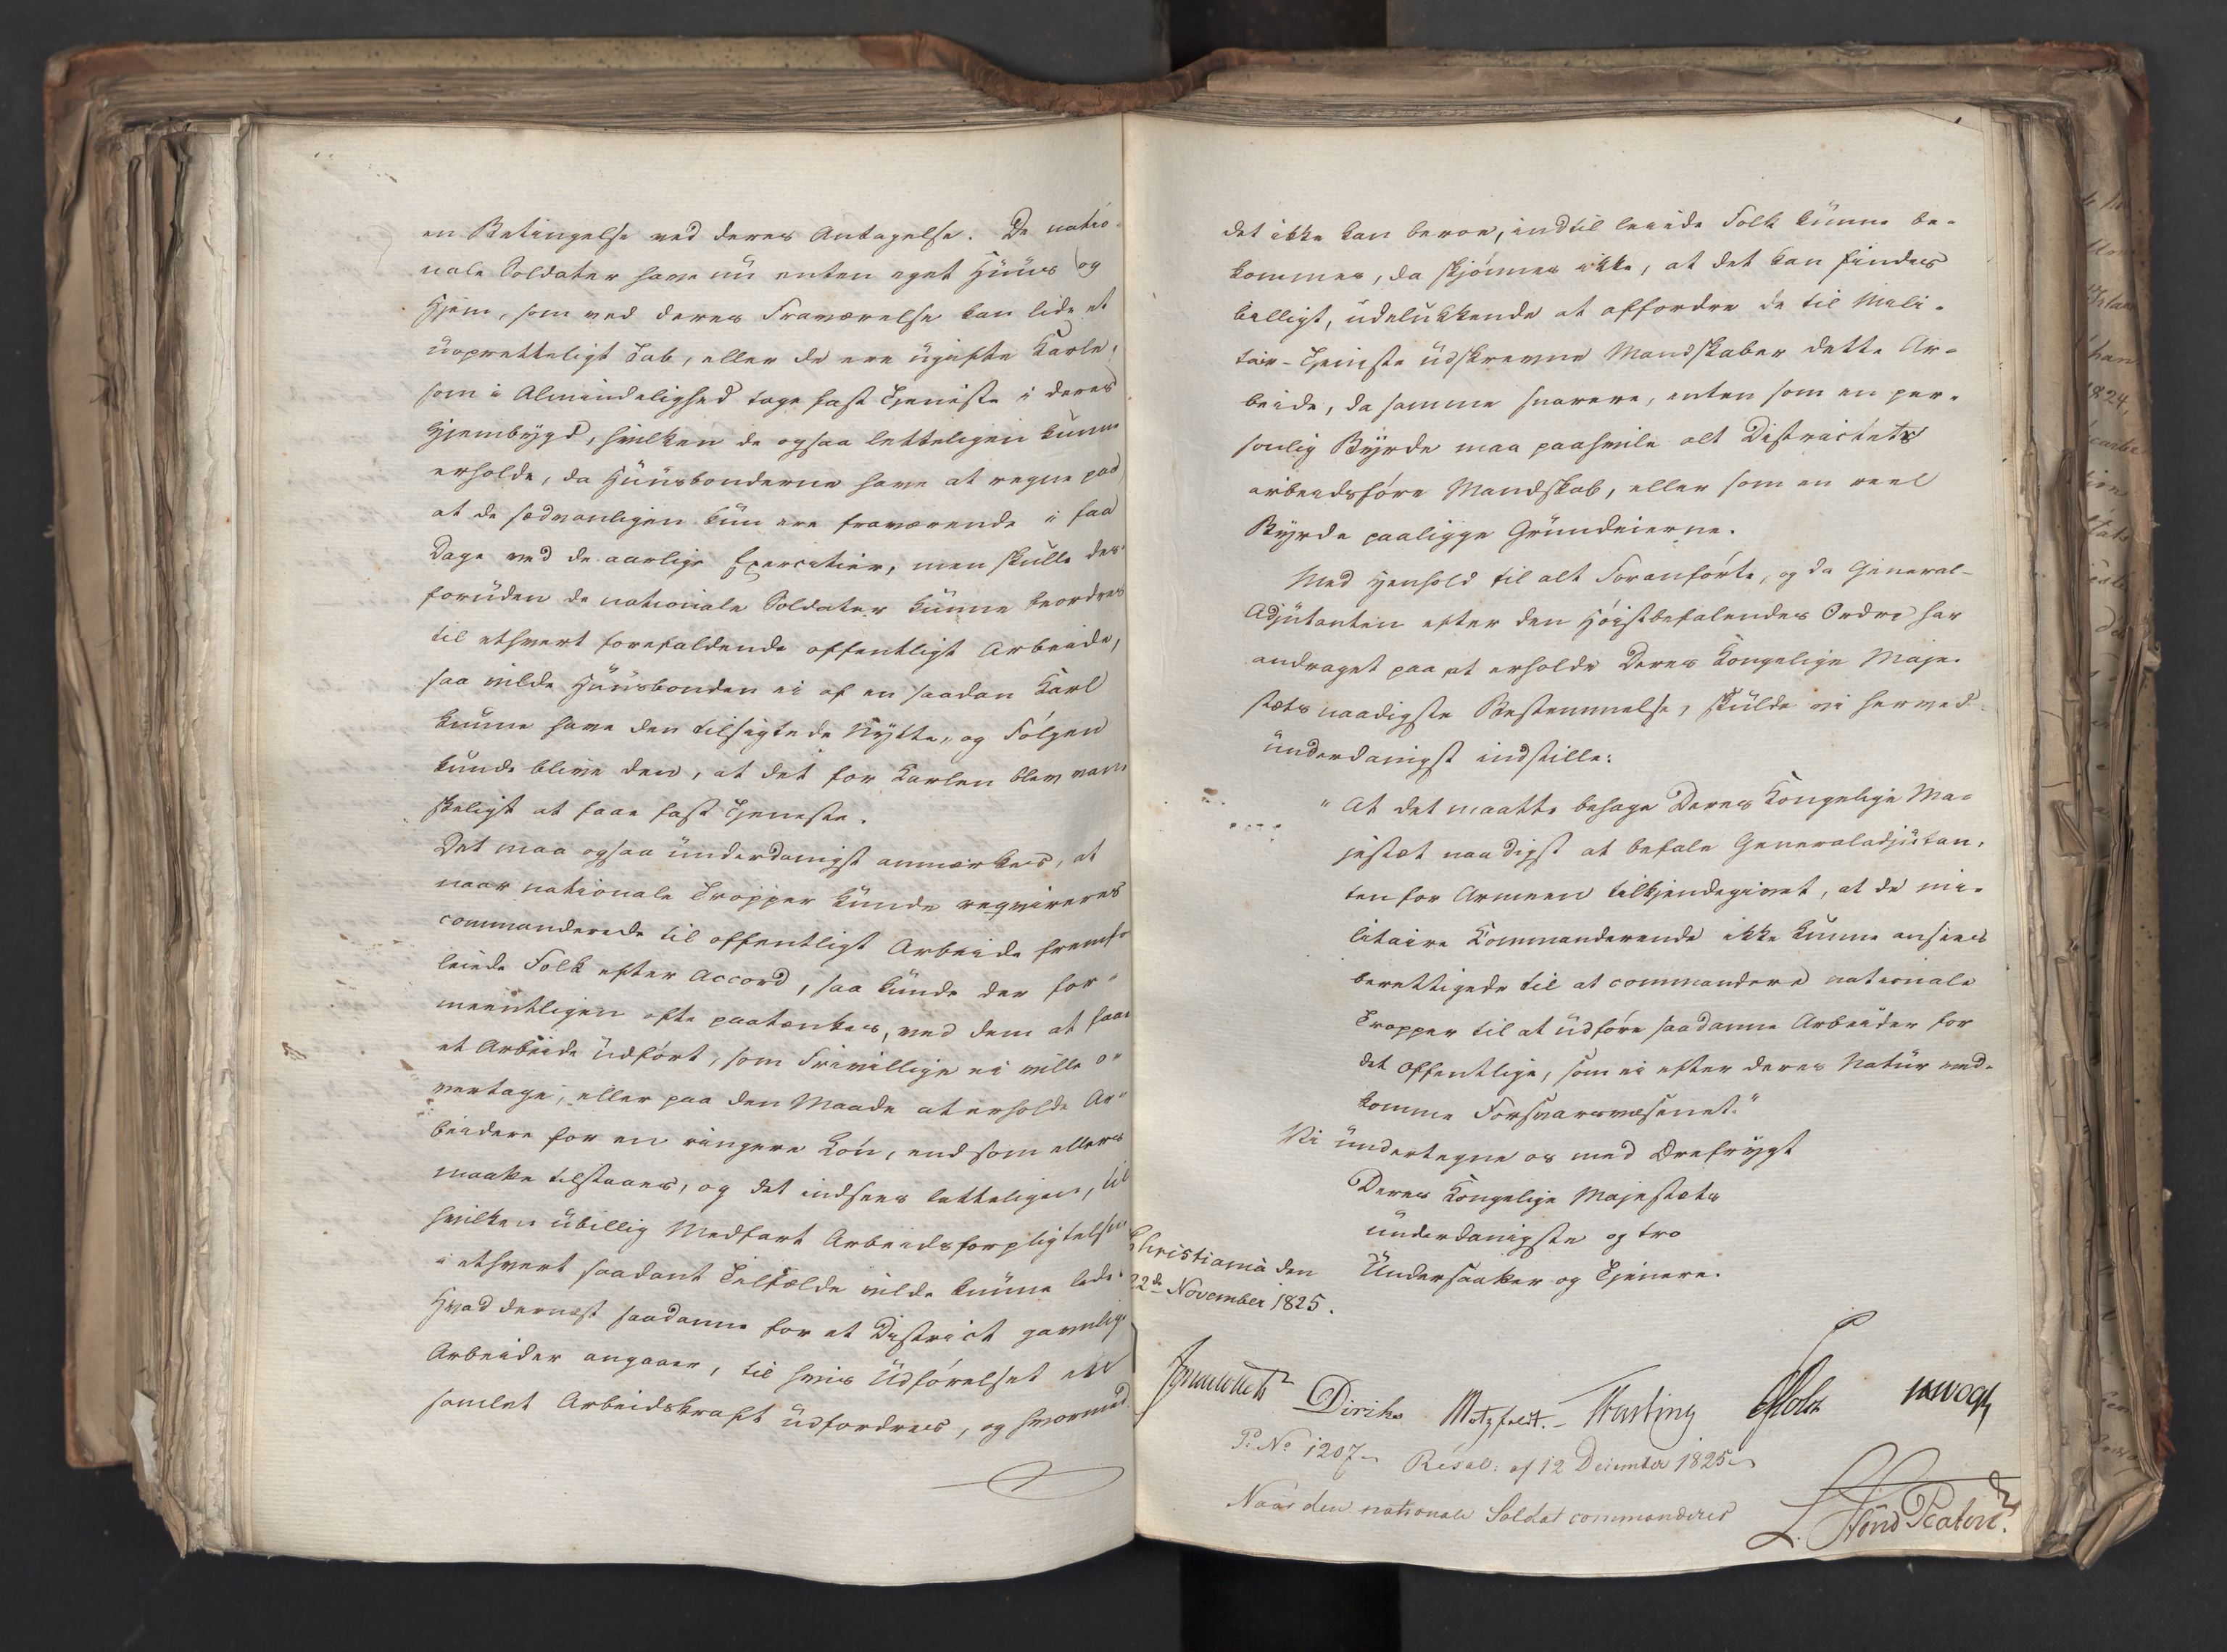 en Betingelse ved deres Antagelse. De natio-
nale Soldater have nu enten eget Huus og
Hjem, som ved deres Fraværelse kan lide et
uopretteligt Tab, eller de ere ugifte Karle,
som i Almindelighed tage fast Tjeneste i deres
Hjembygd, hvilken de ogsaa letteligen kunne
erholde, da Huusbonderne have at regne paa
at de sædvanligen kun ere fraværende i faa
Dage ved de aarlige Exercitier, men skulle des-
foruden de nationale Soldater kunne beordres
til ethvert forefaldende offentligt Arbeide,
saa vilde Huusbonden ei af en saadan Karl
kunne have den tilsigtede Nytte, og Følgen
kunde blive den, at det for Karlen blev van-
skeligt at faae fast Tjeneste.
Det maa ogsaa underdanigst anmærkes, at
naar nationale Tropper kunde reqvireres
commanderede til offentligt Arbeide fremfor
leiede Folk efter Accord, saa kunde der for-
meentligen ofte paatænkes, ved dem at faae
et Arbeide udført, som Frivillige ei ville o-
vertage, eller paa den Maade at erholde Ar-
beidere for en ringere Løn, end som ellers
maatte tilstaaes, og det indsees letteligen, til
hvilken ubillig Medfart Arbeidsforpligtelsen
i ethvert saadant Tilfælde vilde kunne lede.
Hvad dernæst saadanne for et District gavnlige
Arbeider angaaer, til hvis Udførelse et
samlet Arbeidskraft udfordres, og hvormed
det ikke kan beroe, indtil leiede Folk kunne be-
kommes, da skjønnes ikke, at det kan findes
billigt, udelukkende at affordre de til Mili-
tair-Tjeneste udskrevne Mandskaber dette Ar-
beide, da samme snarere, enten som en per-
sonlig Byrde maa paahvile alt Districtets
arbeidsføre Mandskab, eller som en reel
Byrde paaligge Grundeierne.
Med Henhold til alt Foranførte, og da General-
Adjutanten efter den Høistbefalendes Ordre har
andraget paa at erholde Deres Kongelige Maje-
stæts naadigste Bestemmelse, skulde vi herved
underdanigst indstille:
"At det maatte behage Deres Kongelige Ma-
jestæt naadigst at befale Generaladjutan-
ten for Armeen tilkjendegivet, at de mi-
litaire Kommanderende ikke kunne ansees
berettigede til at commandere nationale
Tropper til at udføre saadanne Arbeider for
det Offentlige, som ei efter deres Natur ved-
komme Forsvarsvæsenet."
Vi undertegne os med Ærefrygt
Deres Kongelige Majestæts
underdanigste og tro
Undersaatter og Tjenere.
Christiania den
22de November 1825.
Sommerhielm Diriks Motzfeldt. Fasting Holst
P. No 1207. Resol: af 12 December 1825
Naar den nationale Soldat commanderes